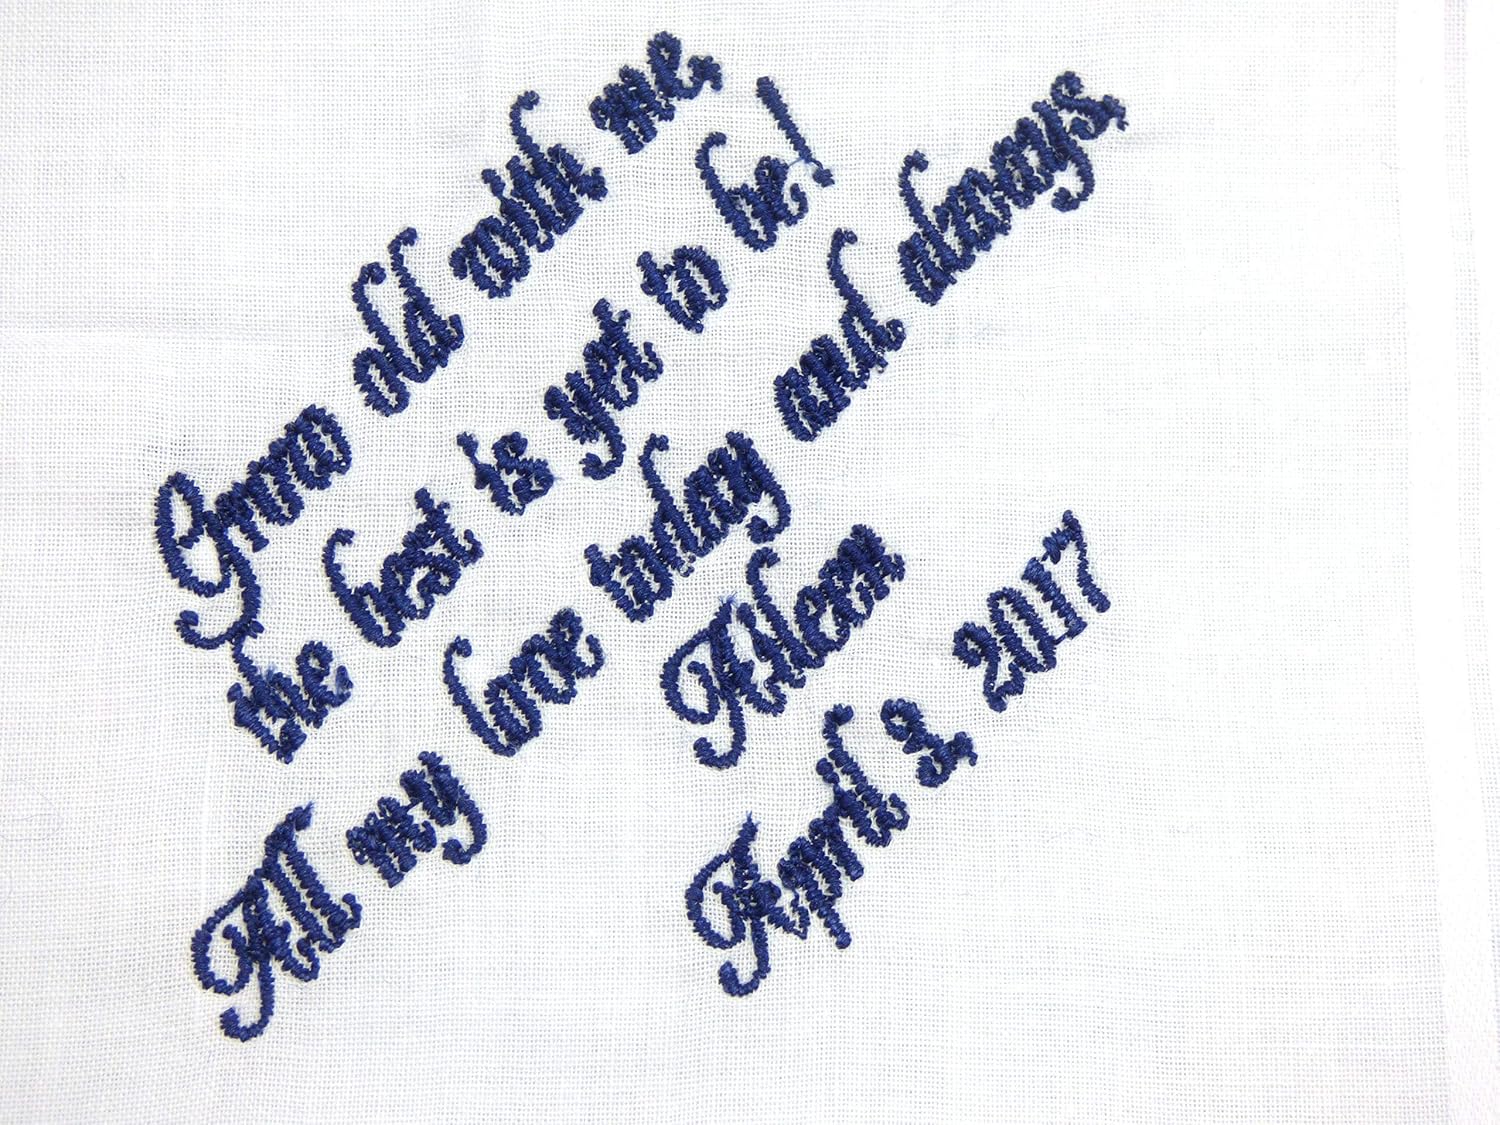 Grow old with me,
the best is yet to be!
All my love today and always,
April 3, 2017